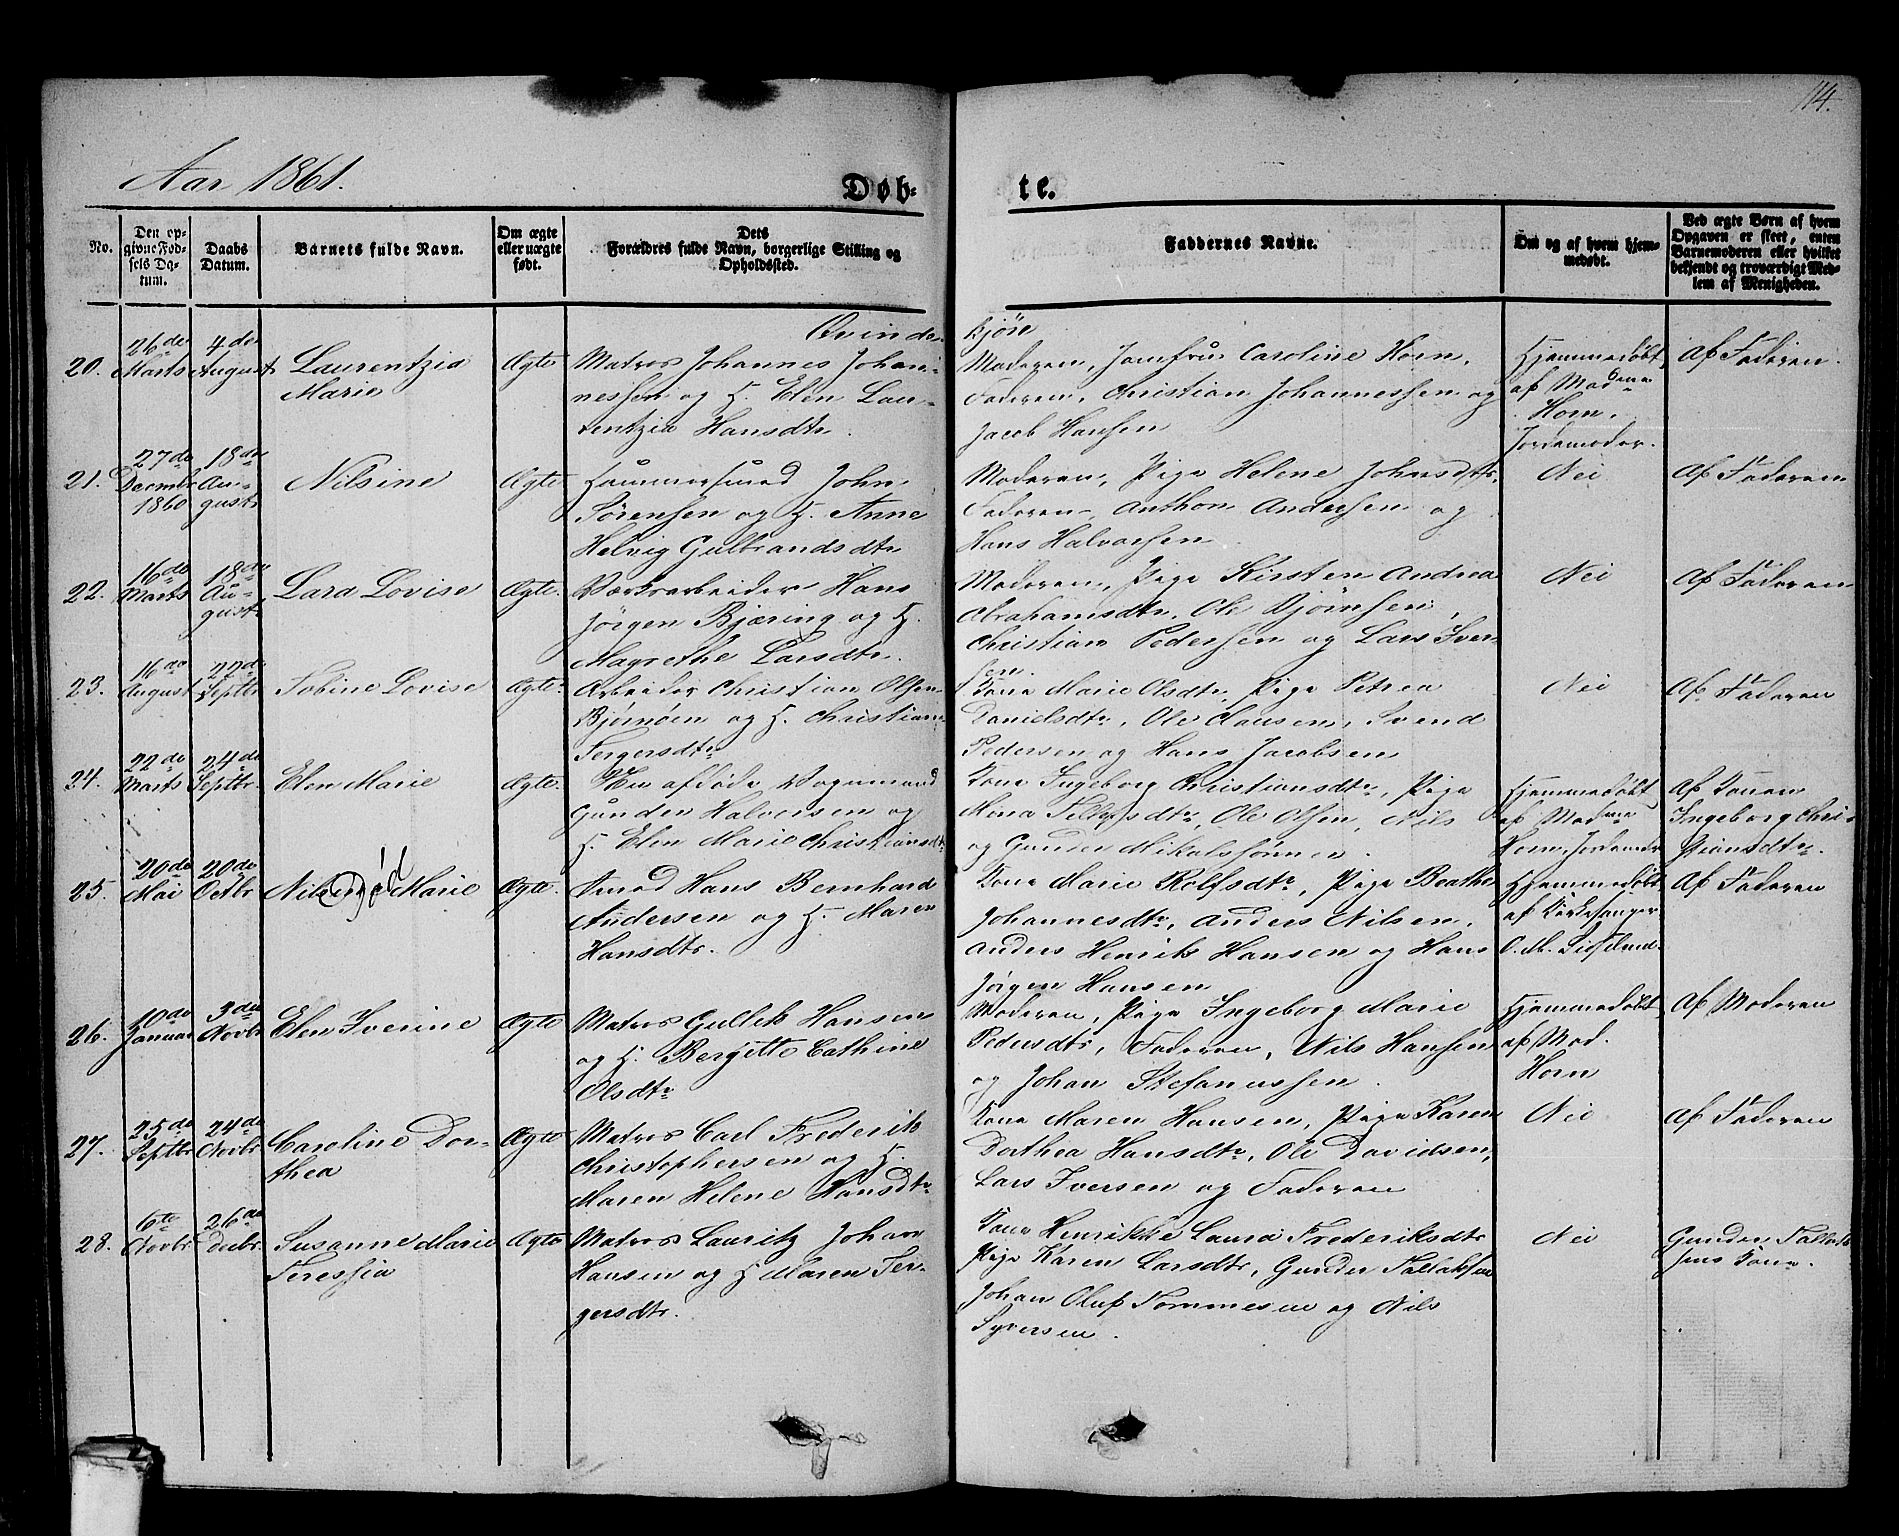 114.
Aar 1861.
Døb-
te.
No.
Den op-
givne Fød-
sels Da-
tum.
Daabs
Datum.
Barnets fulde Navn.
Om ægte
eller uægte
født.
Dets
Forældres fulde Navn, borgerlige Stilling og
Opholdssted.
Faddernes Navne.
Om og af hvem hjem-
medøbt.
Ved ægte Børn af hvem
Opgaven er skeet, enten
Barnemoderen eller hvilket
bekjendt og troværdigt Med-
lem af Menigheden.
Qvinde-
kjöre
20.
26de
Marts
4de
August
Laurentzia
Marie
Ægte
Matros Johannes Johan-
nessen og H. Elen Lau-
rentzia Hansdtr.
Moderen, Jomfru Caroline Horn,
Faderen, Christian Johannessen og
Jacob Hansen
Hjemmedøbt
af Madme
Horn,
Jordemoder.
Af Faderen.
21.
27de
Decmbr
1860
18de
Au-
gust
Nilsine
Ægte
Hammersmed John
Sørensen og H. Anne
Helvig Gulbrandsdtr
Moderen, Pige Helene Johnsdtr.
Faderen, Anthon Andersen og
Hans Halvorsen.
Nei
Af Faderen
22.
16de
Marts
18de
Au-
gust
Lara Lovise
Ægte.
Værksarbeider Hans
Jørgen Bjæring og H.
Magrethe Larsdtr.
Moderen, Pige Kirsten Andrea
Abrahamsdtr, Ole Bjørnsen,
Christian Pedersen og Lars Iver-
sen.
Nei
Af Faderen
23.
16de
August
22de
Septbr
Sobine Lovise
Ægte.
Arbeider Christian Olsen
Bjørnøen og H. Christiane
Tergersdtr
Kone Marie Olsdtr, Pige Petrea
Danielsdtr, Ole Clausen, Svend
Pedersen og Hans Jacobsen
Nei
Af Faderen
24.
22de
Marts
24de
Septbr.
Elen Marie
Ægte.
Nu afdøde Vognmand
Gunder Halvorsen og
H. Elen Marie Christiansdtr
Kone Ingeborg Christiansdtr, Pige
Mona Tellefsdtr, Ole Olsen, Nils
og Gunder Mikalsønner.
Hjemmedøbt
af Madme
Horn, Jordemor
Af Konen
Ingeborg Chri-
stiansdtr.
25.
20de
Mai
20de
Octbr
Nilsine Marie
Død
Ægte.
Smed Hans Bernhard
Andersen og H. Maren
Hansdtr.
Kone Marie Rolfsdtr, Pige Beathe
Johannesdtr, Anders Nilsen,
Anders Henrik Hansen og Hans
Jørgen Hansen
Hjemmedøbt
af Kirkesanger
Af Faderen
26.
10de
Januar
3die
Novbr
Elen Iverine
Ægte
Matros Gullik Hansen
og H. Bergitte Cathine
Olsdtr
Moderen, Pige Ingeborg Marie
Pedersdtr, Faderen, Nils Hansen
og Johan Stefanussen.
Hjemmedøbt
af Mad.
Horn
Af Moderen
27.
25de
Septbr
24de
Novbr
Caroline Dor-
thea
Ægte
Matros Carl Frederik
Christophersen og H.
Maren Helene Hansdtr
Kone Maren Hansen, Pige Karen
Dorthea Hansdtr, Ole Davidsen,
Lars Iversen og Faderen
Nei
Af Faderen
28.
6te
Novbr
26de
Decbr
Susanne Marie
Teressia
Ægte
Matros Lauritz Johan
Hansen og H Maren Ter-
gersdtr.
Kone Henrikke Laura Frederiksdtr
Pige Karen Larsdtr, Gunder Tallaksen
Johan Oluf Tommesen og Nils
Syversen.
Nei
Gunder Tallak-
sens Kone.